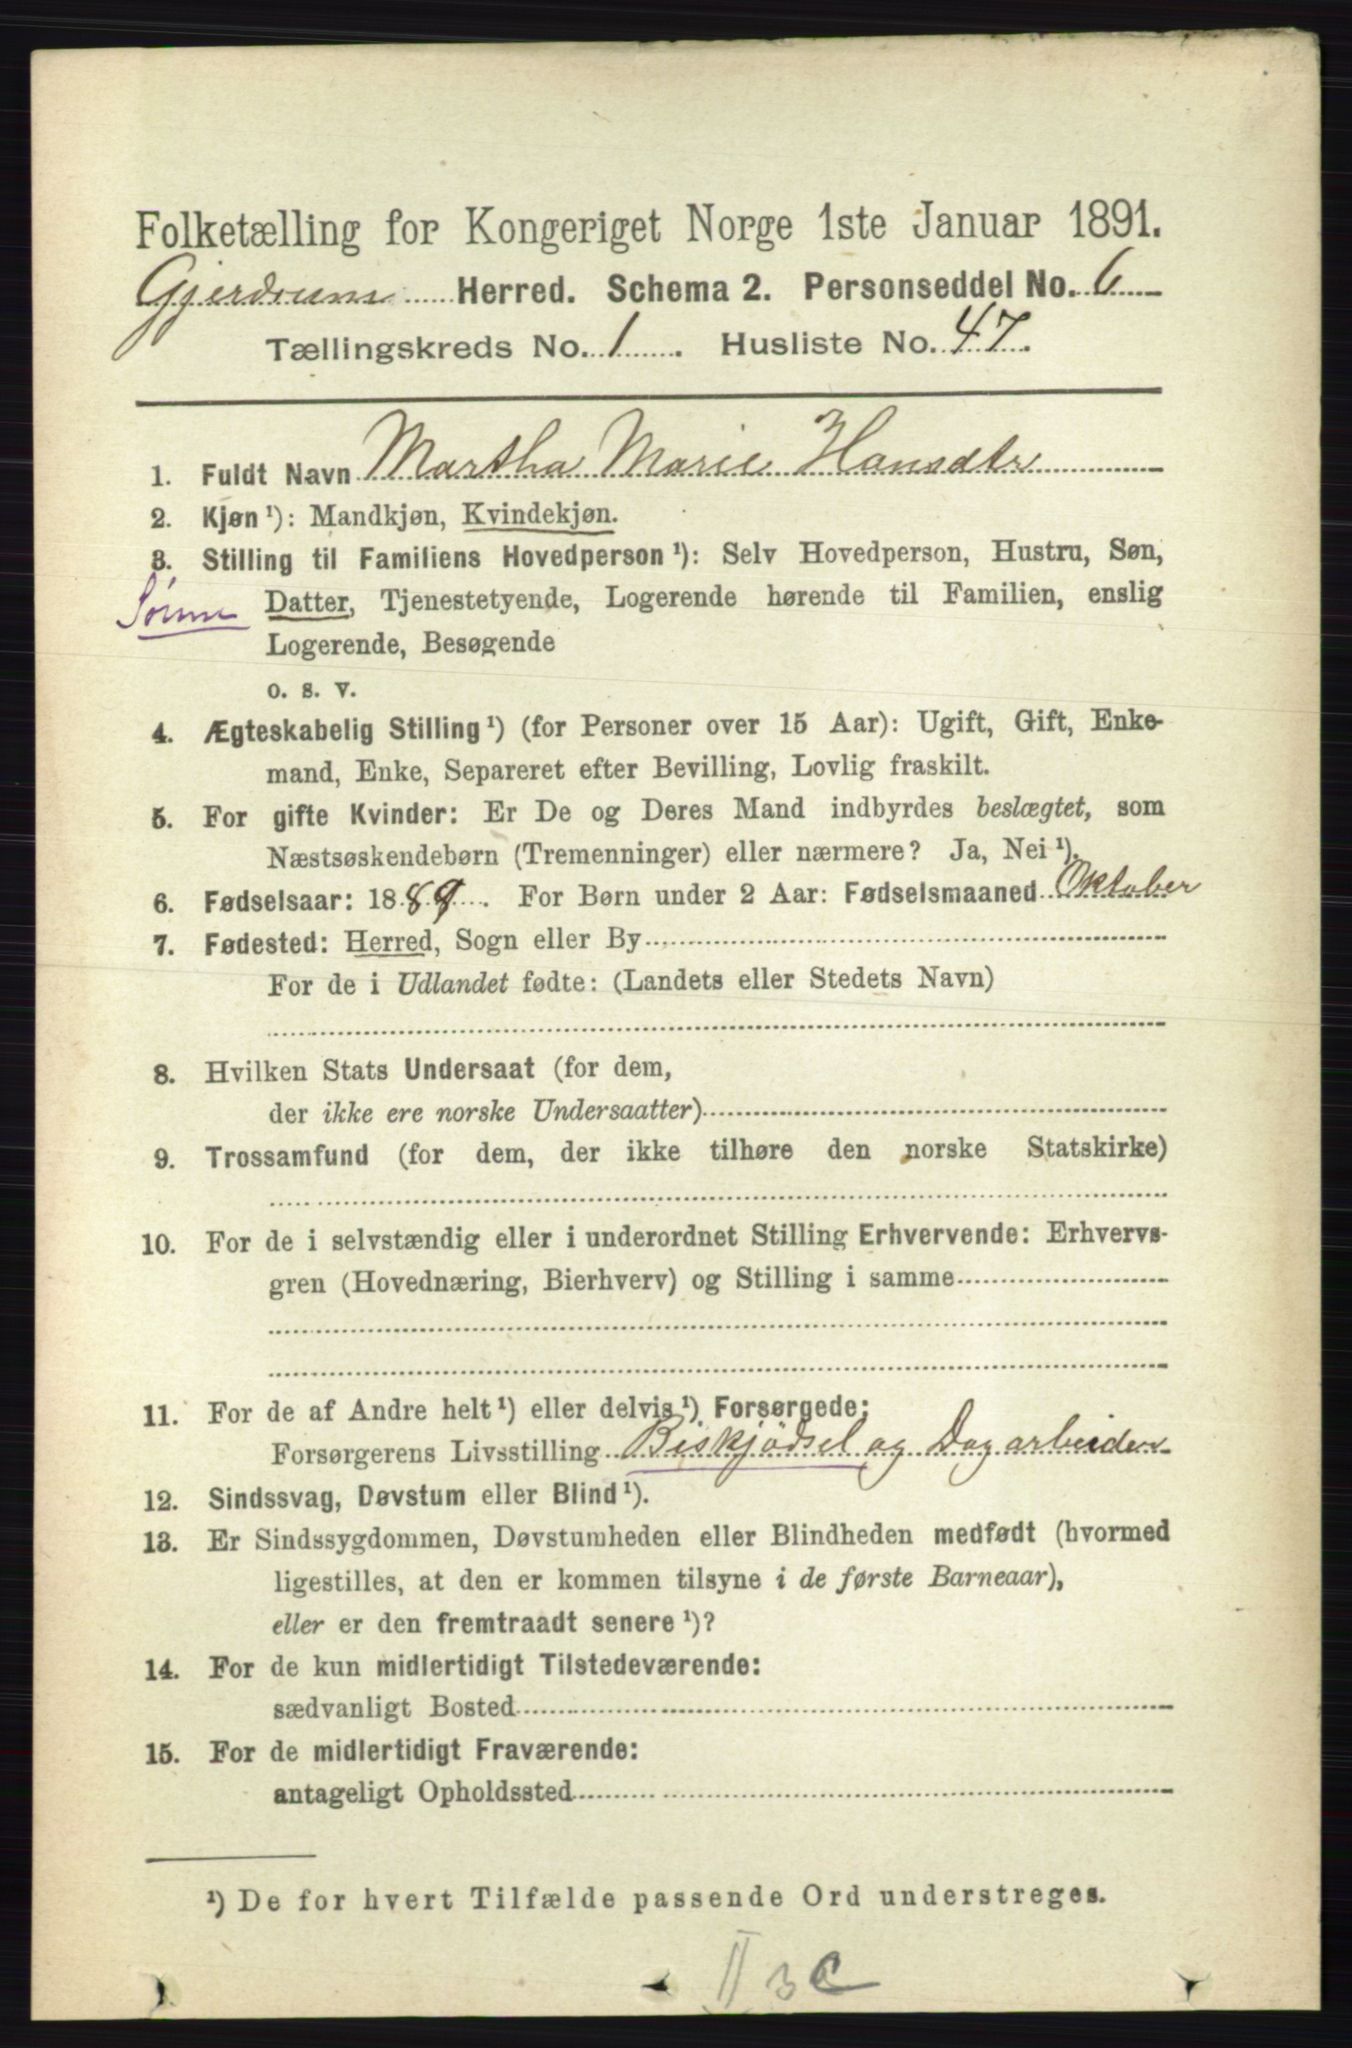 Folketælling for Kongeriget Norge 1ste Januar 1891.
Gjerdrum Herred. Schema 2. Personseddel No. 6
Tællingskreds No. 1. Husliste No. 47.
1. Fuldt Navn Martha Marie Hansdtr
2. Kjøn ¹): Mandkjøn, Kvindekjøn.
3. Stilling til Familiens Hovedperson ¹): Selv Hovedperson, Hustru, Søn,
Datter, Tjenestetyende, Logerende hørende til Familien, enslig
Logerende, Besøgende
o. s. v.
4. Ægteskabelig Stilling ¹) (for Personer over 15 Aar): Ugift, Gift, Enke-
mand, Enke, Separeret efter Bevilling, Lovlig fraskilt.
5. For gifte Kvinder: Er De og Deres Mand indbyrdes beslægtet, som
Næstsøskendebørn (Tremenninger) eller nærmere? Ja, Nei ¹).
6. Fødselsaar: 1889. For Børn under 2 Aar: Fødselsmaaned Oktober
7. Fødested: Herred, Sogn eller By
For de i Udlandet fødte: (Landets eller Stedets Navn)
8. Hvilken Stats Undersaat (for dem,
der ikke ere norske Undersaatter)
9. Trossamfund (for dem, der ikke tilhøre den norske Statskirke)
10. For de i selvstændig eller i underordnet Stilling Erhvervende: Erhvervs-
gren (Hovednæring, Bierhverv) og Stilling i samme
11. For de af Andre helt ¹) eller delvis ¹) Forsørgede:
Forsørgerens Livsstilling og Dagarbeider
12. Sindssvag, Døvstum eller Blind ¹).
13. Er Sindssygdommen, Døvstumheden eller Blindheden medfødt (hvormed
ligestilles, at den er kommen tilsyne i de første Barneaar),
eller er den fremtraadt senere ¹)?
14. For de kun midlertidigt Tilstedeværende:
sædvanligt Bosted
15. For de midlertidigt Fraværende:
antageligt Opholdssted
¹) De for hvert Tilfælde passende Ord understreges.
II 3 C